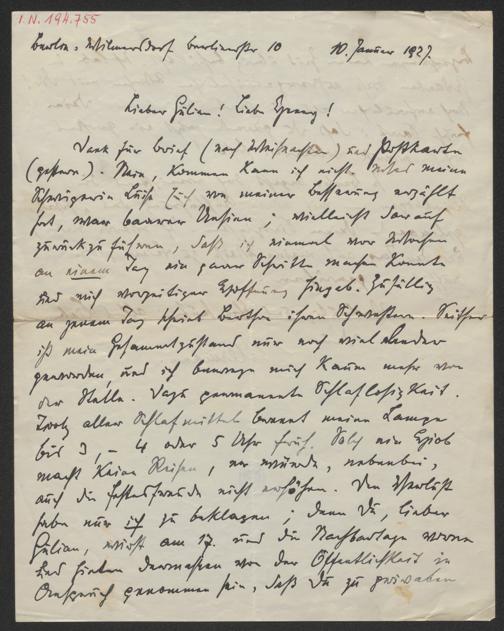 I.N. 194.755
Berlin-Wilmersdorf Berlinerstr 10 10. Januar 1927.
Lieber Julian! Liebe Jenny!
Dank für Brief (nach Weihnachten) und Postkarte
(gestern). Nein, kommen kann ich nicht. Was meine
Schwägerin Luise Euch von meiner Besserung erzählt
hat, war barer Unsinn; vielleicht darauf
zurückzuführen, daß ich einmal vor Wochen
an einem Tag ein paar Schritte machen konnte
und mich vorzeitiger Hoffnung hingab. Zufällig
an jenem Tag schrieb Bertha ihren Schwestern. Seither
ist mein Gesammtzustand nur noch viel elender
geworden, und ich bewege mich kaum mehr von
der Stelle. Dazu permanente Schlaflosigkeit.
Trotz aller Schlafmittel brennt meine Lampe
bis 3, – 4 oder 5 Uhr früh. Solch ein
macht keine Reisen, er würde, nebenbei,
auch die Festesfreude nicht erhöhen. Den Verlust
habe nur ich zu beklagen; denn Du, lieber
Julian, wirst am 17. und die Nachbartage vorne
und hinten dermaßen von der Öffentlichkeit in
Anspruch genommen sein, daß Du zu privaten